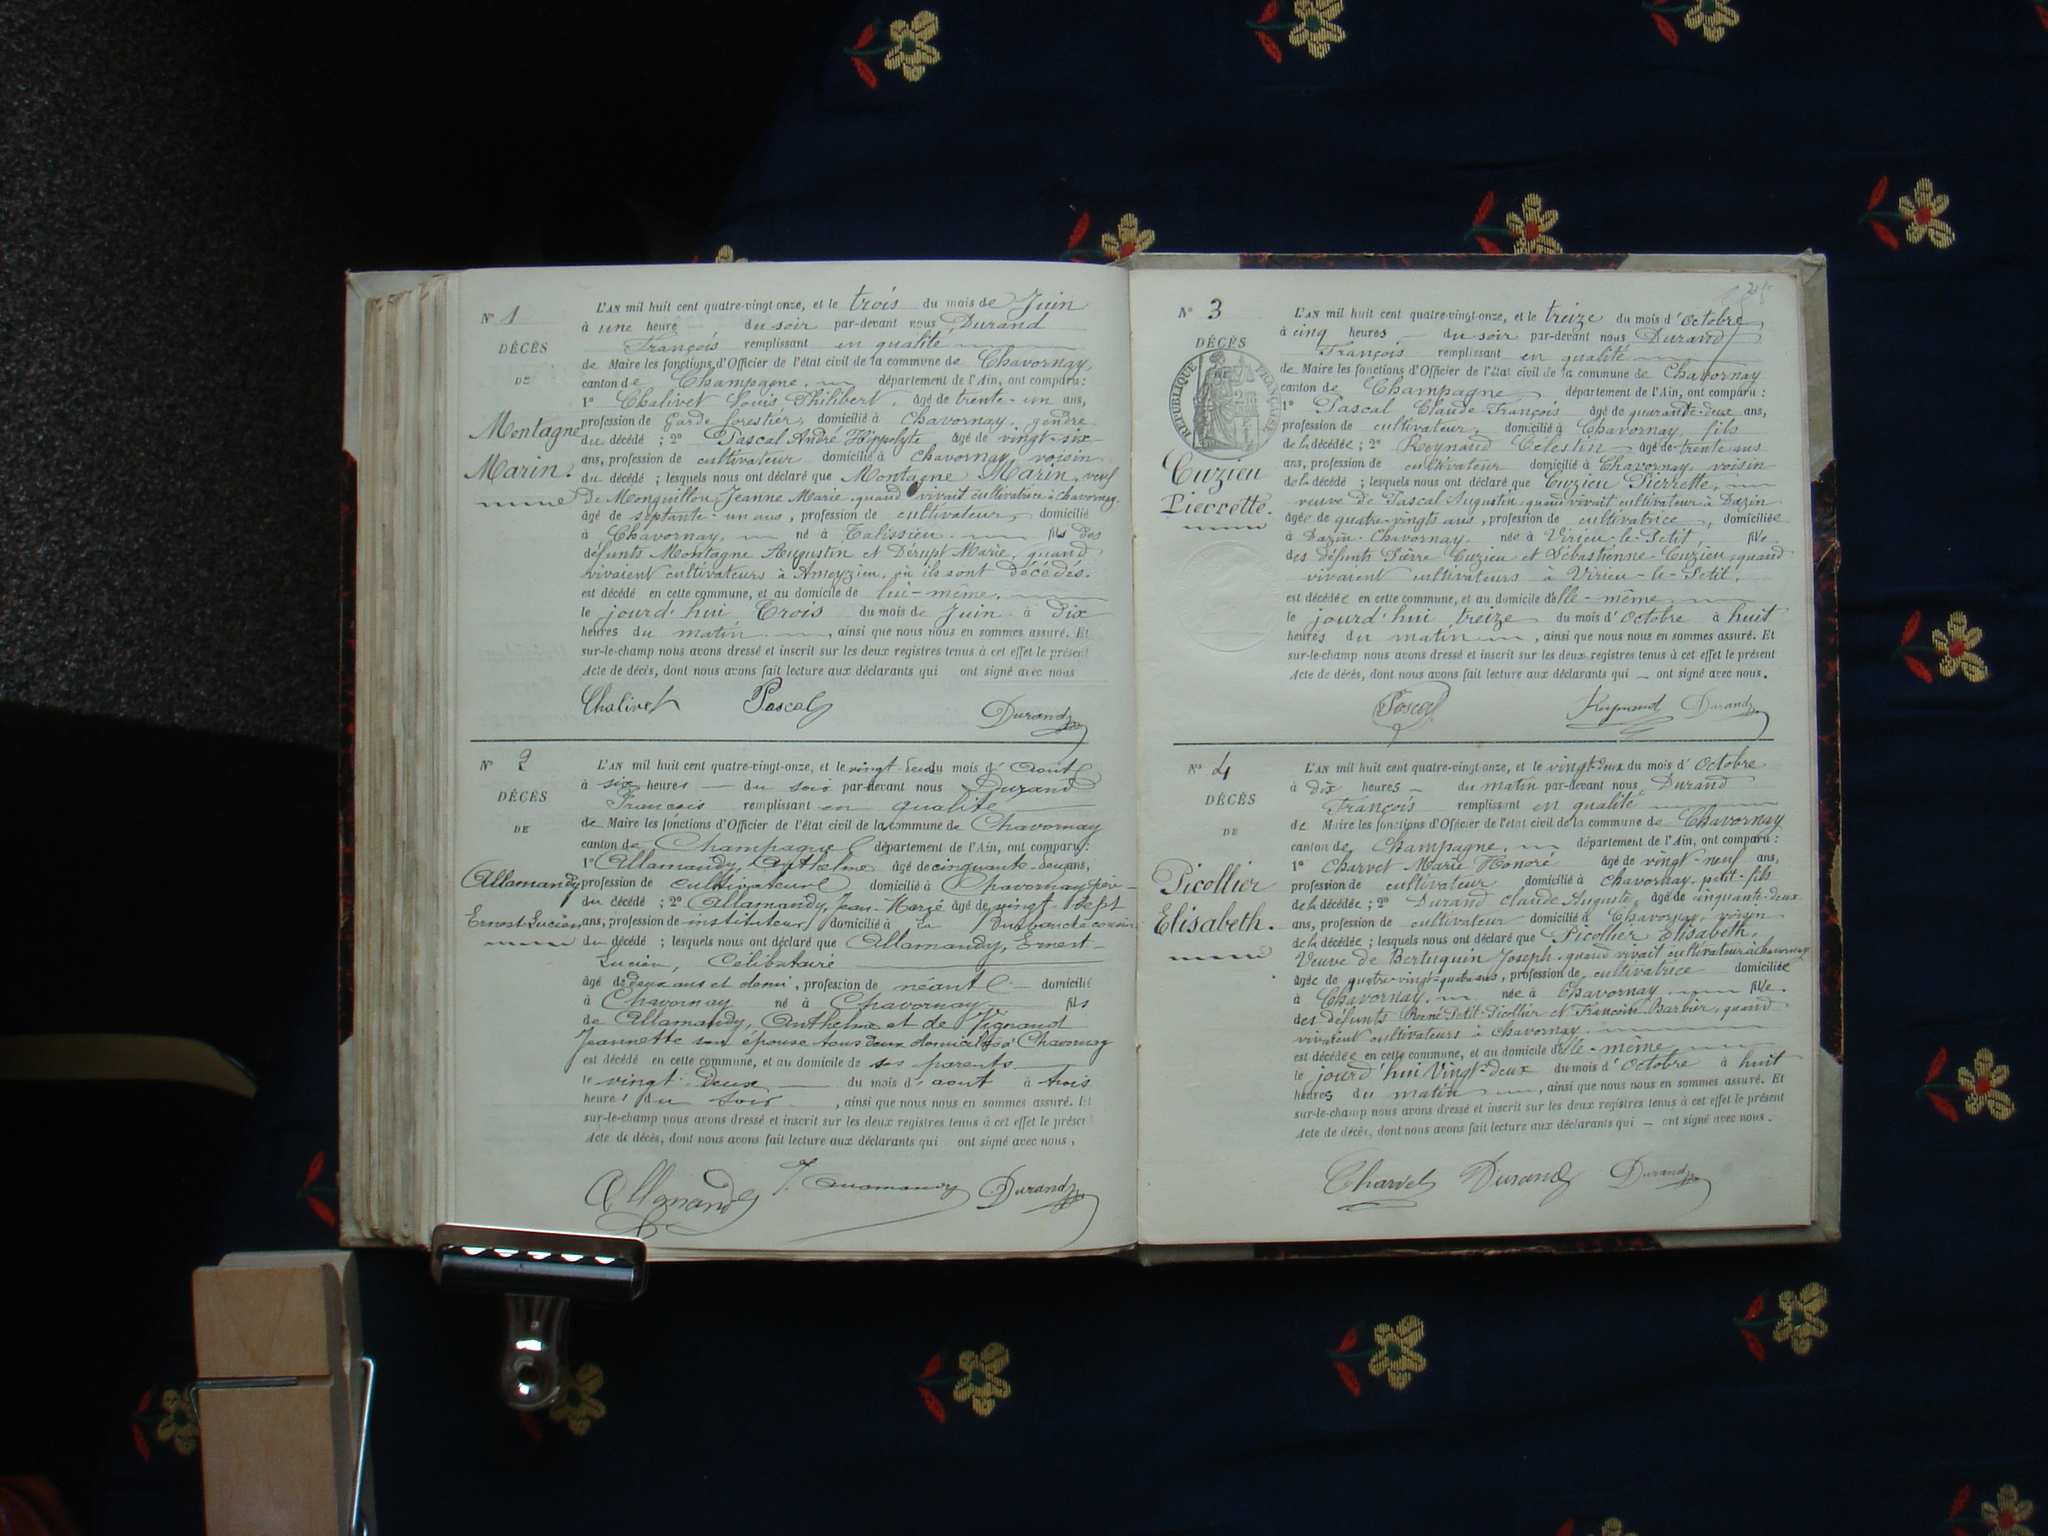 N° 1
DÉCÈS
DE
Montagne
Marin.
L'AN mil huit cent quatre-vingt-onze, et le trois du mois de Juin
à une heure du soir par-devant nous Durand
François remplissant en qualité
de Maire les fonctions d'Officier de l'état civil de la commune de Chavornay
canton de Champagne, département de l'Ain, ont comparu :
1° Chalivet Louis Philibert, âgé de trente-un ans,
profession de Garde forestier, domicilié à Chavornay, gendre
du décédé ; 2° Pascal André Hippolyte âgé de vingt-six
ans, profession de cultivateur domicilié à Chavornay, voisin
du décédé ; lesquels nous ont déclaré que Montagne Marin, veuf
de Monguillou Jeanne Marie quand vivait cultivatrice à Chavornay
âgé de septante-un ans, profession de cultivateur, domicilié
à Chavornay, né à Talissieu fils des
défunts Montagne Augustin et Dérupt Marie, quand
vivaient cultivateurs à Ameyzieu, où ils sont décédés.
est décédé en cette commune, et au domicile de lui-même.
le jourd'hui Trois du mois de Juin à Dix
heures du matin, ainsi que nous nous en sommes assuré. Et
sur-le-champ nous avons dressé et inscrit sur les deux registres tenus à cet effet le présent
Acte de décès, dont nous avons fait lecture aux déclarants qui ont signé avec nous
Chalivet Pascal Durand
N° 2
DÉCÈS
DE
Allamandy
Ernest Lucien
L'AN mil huit cent quatre-vingt-onze, et le vingt-deux du mois d'Aout
à six heures du soir par-devant nous Durand
François remplissant en qualité
de Maire les fonctions d'Officier de l'état civil de la commune de Chavornay
canton de Champagne département de l'Ain, ont comparu :
1° Allamandy, Anthelme âgé de cinquante-deux ans,
profession de cultivateur domicilié à Chavornay père
du décédé ; 2° Allamandy, Jean-Marie âgé de vingt-sept
ans, profession de instituteur domicilié à La cousin
du décédé ; lesquels nous ont déclaré que Allamandy, Ernest
Lucien, Célibataire
âgé de deux ans et demi, profession de néant domicilié
à Chavornay né à Chavornay fils
de Allamandy, Anthelme et de Vignaud
Jeannette son épouse tous deux domiciliés à Chavornay
est décédé en cette commune, et au domicile de ses parents
le vingt-deux du mois d'aout à trois
heures du soir, ainsi que nous nous en sommes assuré. Et
sur-le-champ nous avons dressé et inscrit sur les deux registres tenus à cet effet le présent
Acte de décès, dont nous avons fait lecture aux déclarants qui ont signé avec nous,
Allamandy J. Allamandy Durand
N° 3
DÉCÈS
RÉPUBLIQUE FRANÇAISE
Cuzieu
Pierrette.
L'AN mil huit cent quatre-vingt-onze, et le treize du mois d'Octobre
à cinq heures du soir par-devant nous Durand
François remplissant en qualité
de Maire les fonctions d'Officier de l'état civil de la commune de Chavornay
canton de Champagne département de l'Ain, ont comparu :
1° Pascal Claude François âgé de quarante-deux ans,
profession de cultivateur, domicilié à Chavornay, fils
de la décédée ; 2° Reynaud Célestin âgé de trente ans
ans, profession de cultivateur domicilié à Chavornay, voisin
de la décédée ; lesquels nous ont déclaré que Cuzieu Pierrette,
veuve de Pascal Augustin, quand vivait cultivateur à Dazin
âgée de quatre-vingts ans, profession de cultivatrice, domiciliée
à Dazin-Chavornay, née à Virieu-le-Petit, fille
des défunts Pierre Cuzieu et Sébastienne Cuzieu, quand
vivaient cultivateurs à Virieu-le-Petit.
est décédée en cette commune, et au domicile d'elle-même
le jourd'hui treize du mois d'Octobre à huit
heures du matin, ainsi que nous nous en sommes assuré. Et
sur-le-champ nous avons dressé et inscrit sur les deux registres tenus à cet effet le présent
Acte de décès, dont nous avons fait lecture aux déclarants qui — ont signé avec nous.
Pascal Reynaud Durand
N° 4
DÉCÈS
DE
Picollier
Elisabeth.
L'AN mil huit cent quatre-vingt-onze, et le vingt-deux du mois d'Octobre
à dix heures du matin par-devant nous Durand
François remplissant en qualité
de Maire les fonctions d'Officier de l'état civil de la commune de Chavornay
canton de Champagne, département de l'Ain, ont comparu :
1° Charvet Marie Honoré âgé de vingt-neuf ans,
profession de cultivateur domicilié à Chavornay, petit-fils
de la décédée ; 2° Durand Claude Auguste, âgé de cinquante-deux
ans, profession de cultivateur domicilié à Chavornay, voisin
de la décédée ; lesquels nous ont déclaré que Picollier Elisabeth,
Veuve de Bertuquin Joseph, quand vivait cultivateur à Chavornay
âgée de quatre-vingt-quatre ans, profession de cultivatrice domiciliée
à Chavornay, née à Chavornay fille
des défunts René Petit-Picollier et Françoise Barbier, quand
vivaient cultivateurs à Chavornay
est décédée en cette commune, et au domicile d'elle-même
le jourd'hui Vingt-deux du mois d'Octobre à huit
heures du matin, ainsi que nous nous en sommes assuré. Et
sur-le-champ nous avons dressé et inscrit sur les deux registres tenus à cet effet le présent
Acte de décès, dont nous avons fait lecture aux déclarants qui — ont signé avec nous.
Charvet Durand Durand